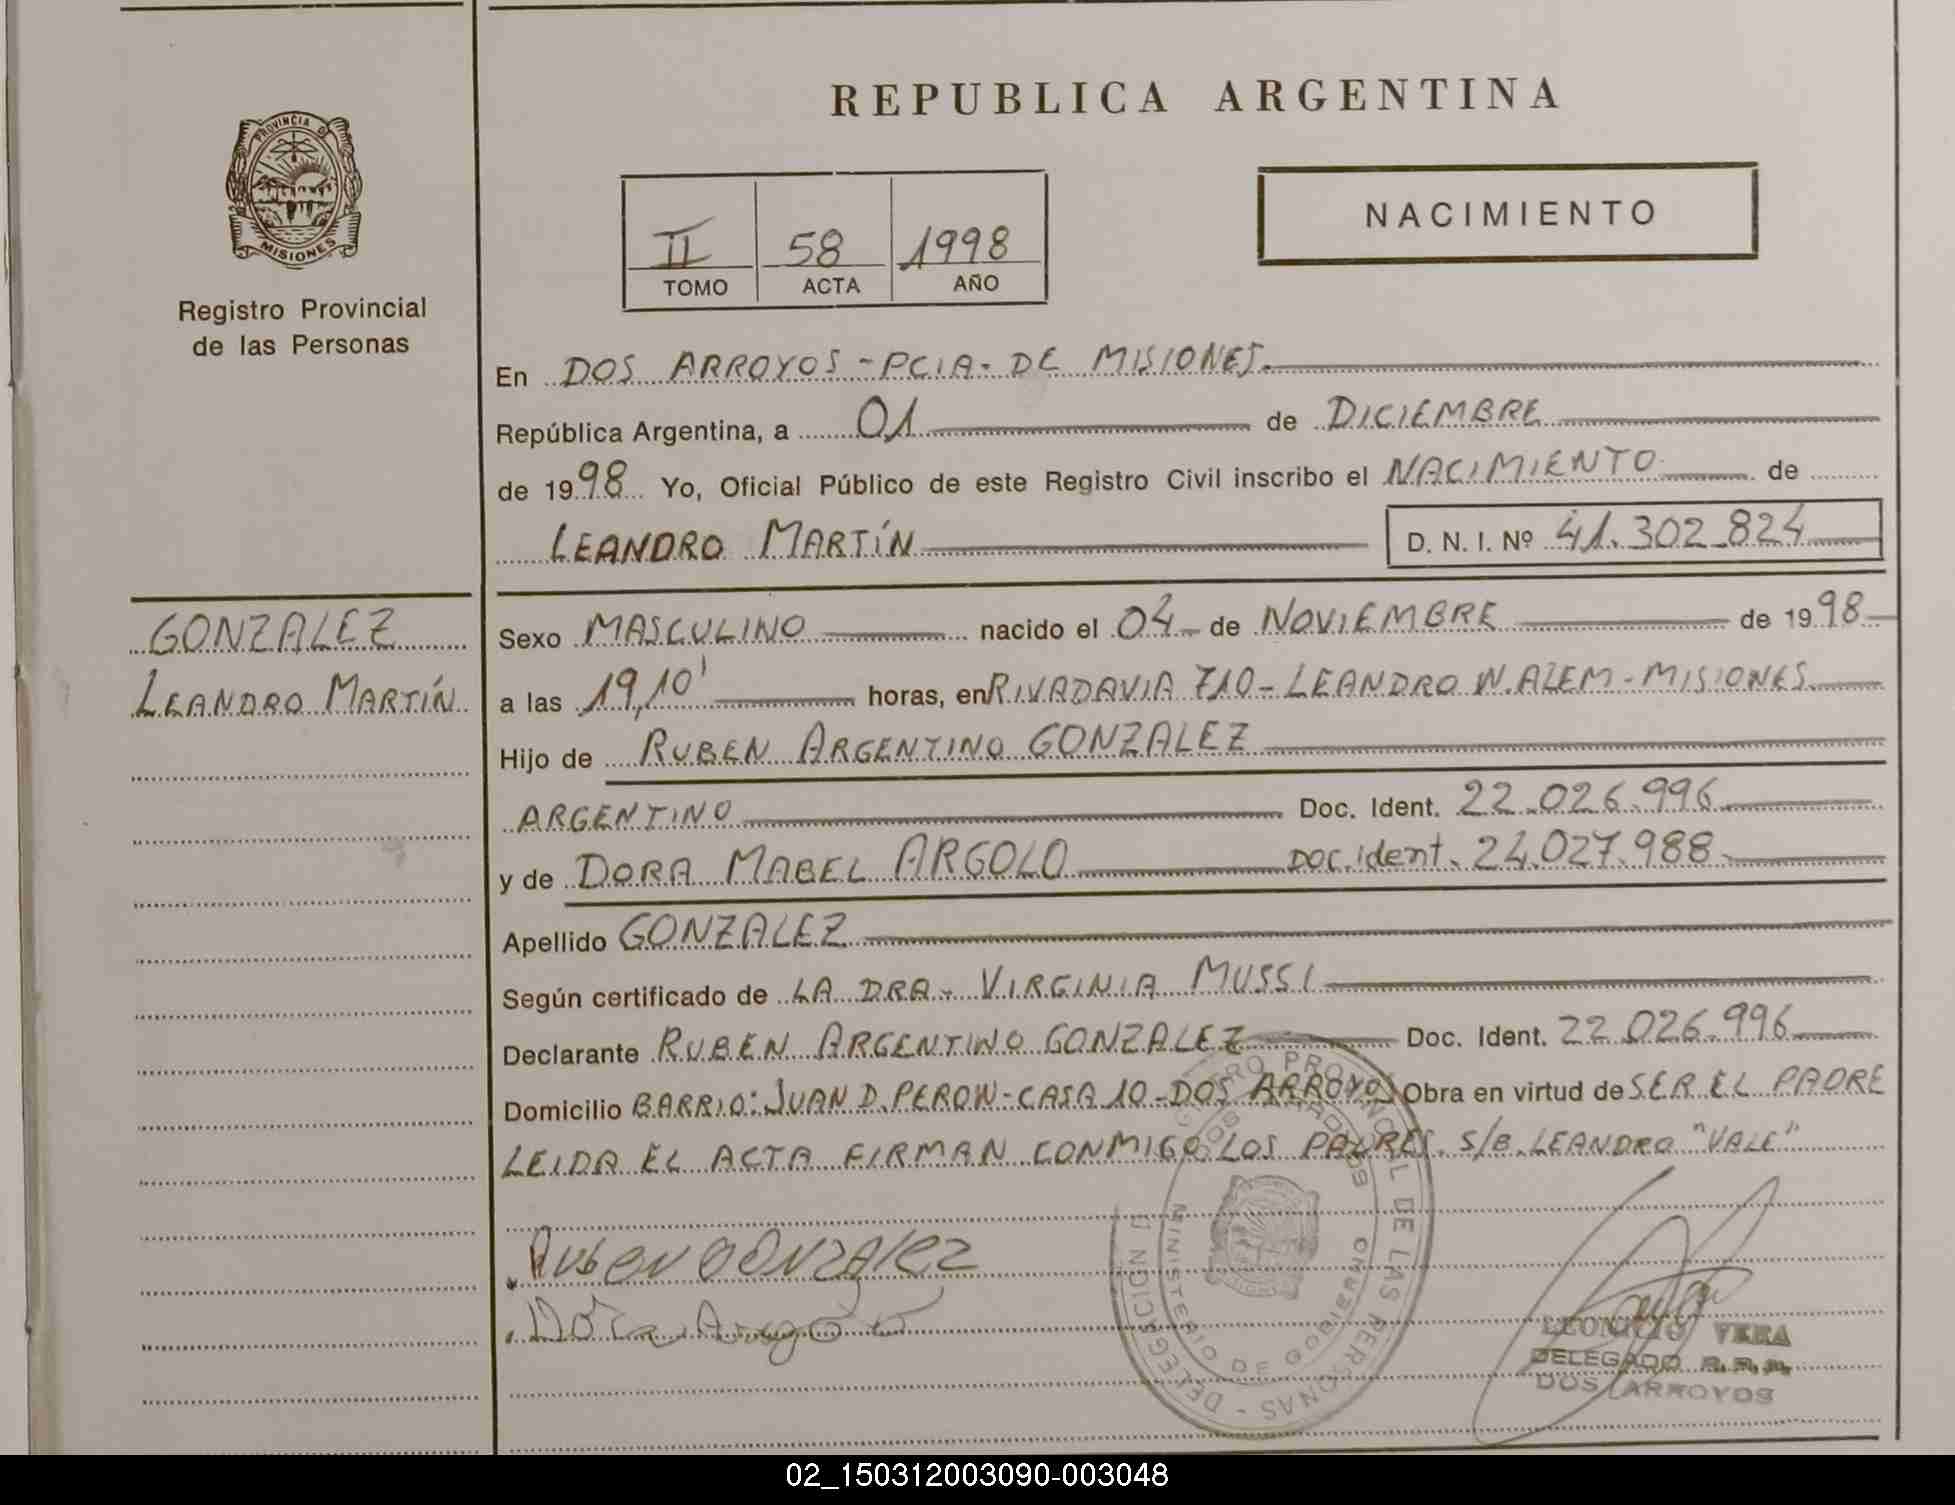 REPUBLICA ARGENTINA
PROVINCIA DE
MISIONES
Registro Provincial
de las Personas
NACIMIENTO
II 58 1998
TOMO ACTA AÑO
En DOS ARROYOS - PCIA. DE MISIONES.
República Argentina, a 01 de DICIEMBRE
de 1998 Yo, Oficial Público de este Registro Civil inscribo el NACIMIENTO de
LEANDRO MARTÍN D. N. I. Nº 41.302.824
GONZALEZ
LEANDRO MARTÍN
Sexo MASCULINO nacido el 04 de NOVIEMBRE de 1998
a las 19,10' horas, en RIVADAVIA 710 - LEANDRO N. ALEM - MISIONES.
Hijo de RUBEN ARGENTINO GONZALEZ
ARGENTINO Doc. Ident. 22.026.996
y de DORA MABEL ARGOLO Doc. Ident. 24.027.988
Apellido GONZALEZ
Según certificado de LA DRA. VIRGINIA MUSSI
Declarante RUBEN ARGENTINO GONZALEZ Doc. Ident. 22.026.996
Domicilio BARRIO: JUAN D. PERON - CASA 10 - DOS ARROYOS Obra en virtud de SER EL PADRE
LEIDA EL ACTA FIRMAN CONMIGO LOS PADRES. S/B. LEANDRO "VALE"
Ruben Gonzalez
Dora Argolo
REGISTRO PROVINCIAL DE LAS PERSONAS - DELEGACION
MINISTERIO DE GOBIERNO
VERA
DELEGADO R.P.P.
DOS ARROYOS
02_150312003090-003048